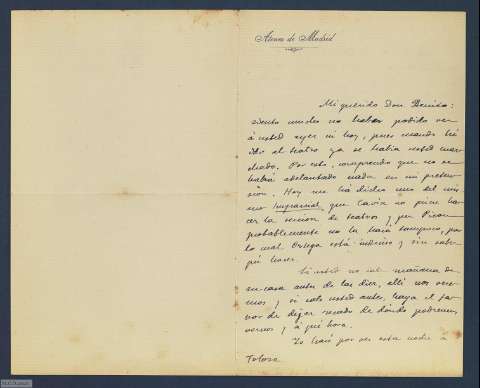 Ateneo de Madrid
Mi querido Don Benito:
siento mucho no haber podido ver
á usted ayer ni hoy, pues cuando he
ido al teatro ya se había usted mar
chado. Por esto, comprendo que no se
habrá adelantado nada en mi preten
sión. Hoy me ha dicho uno del mis
mo Imparcial que Cavia no quiere ha
cer la sección de teatros y que Picón
probablemente no la hará tampoco, por
lo cual Ortega está indeciso y sin saber
qué hacer.
Si usted no sale mañana de
su casa antes de las diez, allí nos vere
mos y si sale usted antes, haga el fa
vor de dejar recado de dónde podremos
vernos y á qué hora.
Yo haré por ver esta noche á
Tolosa